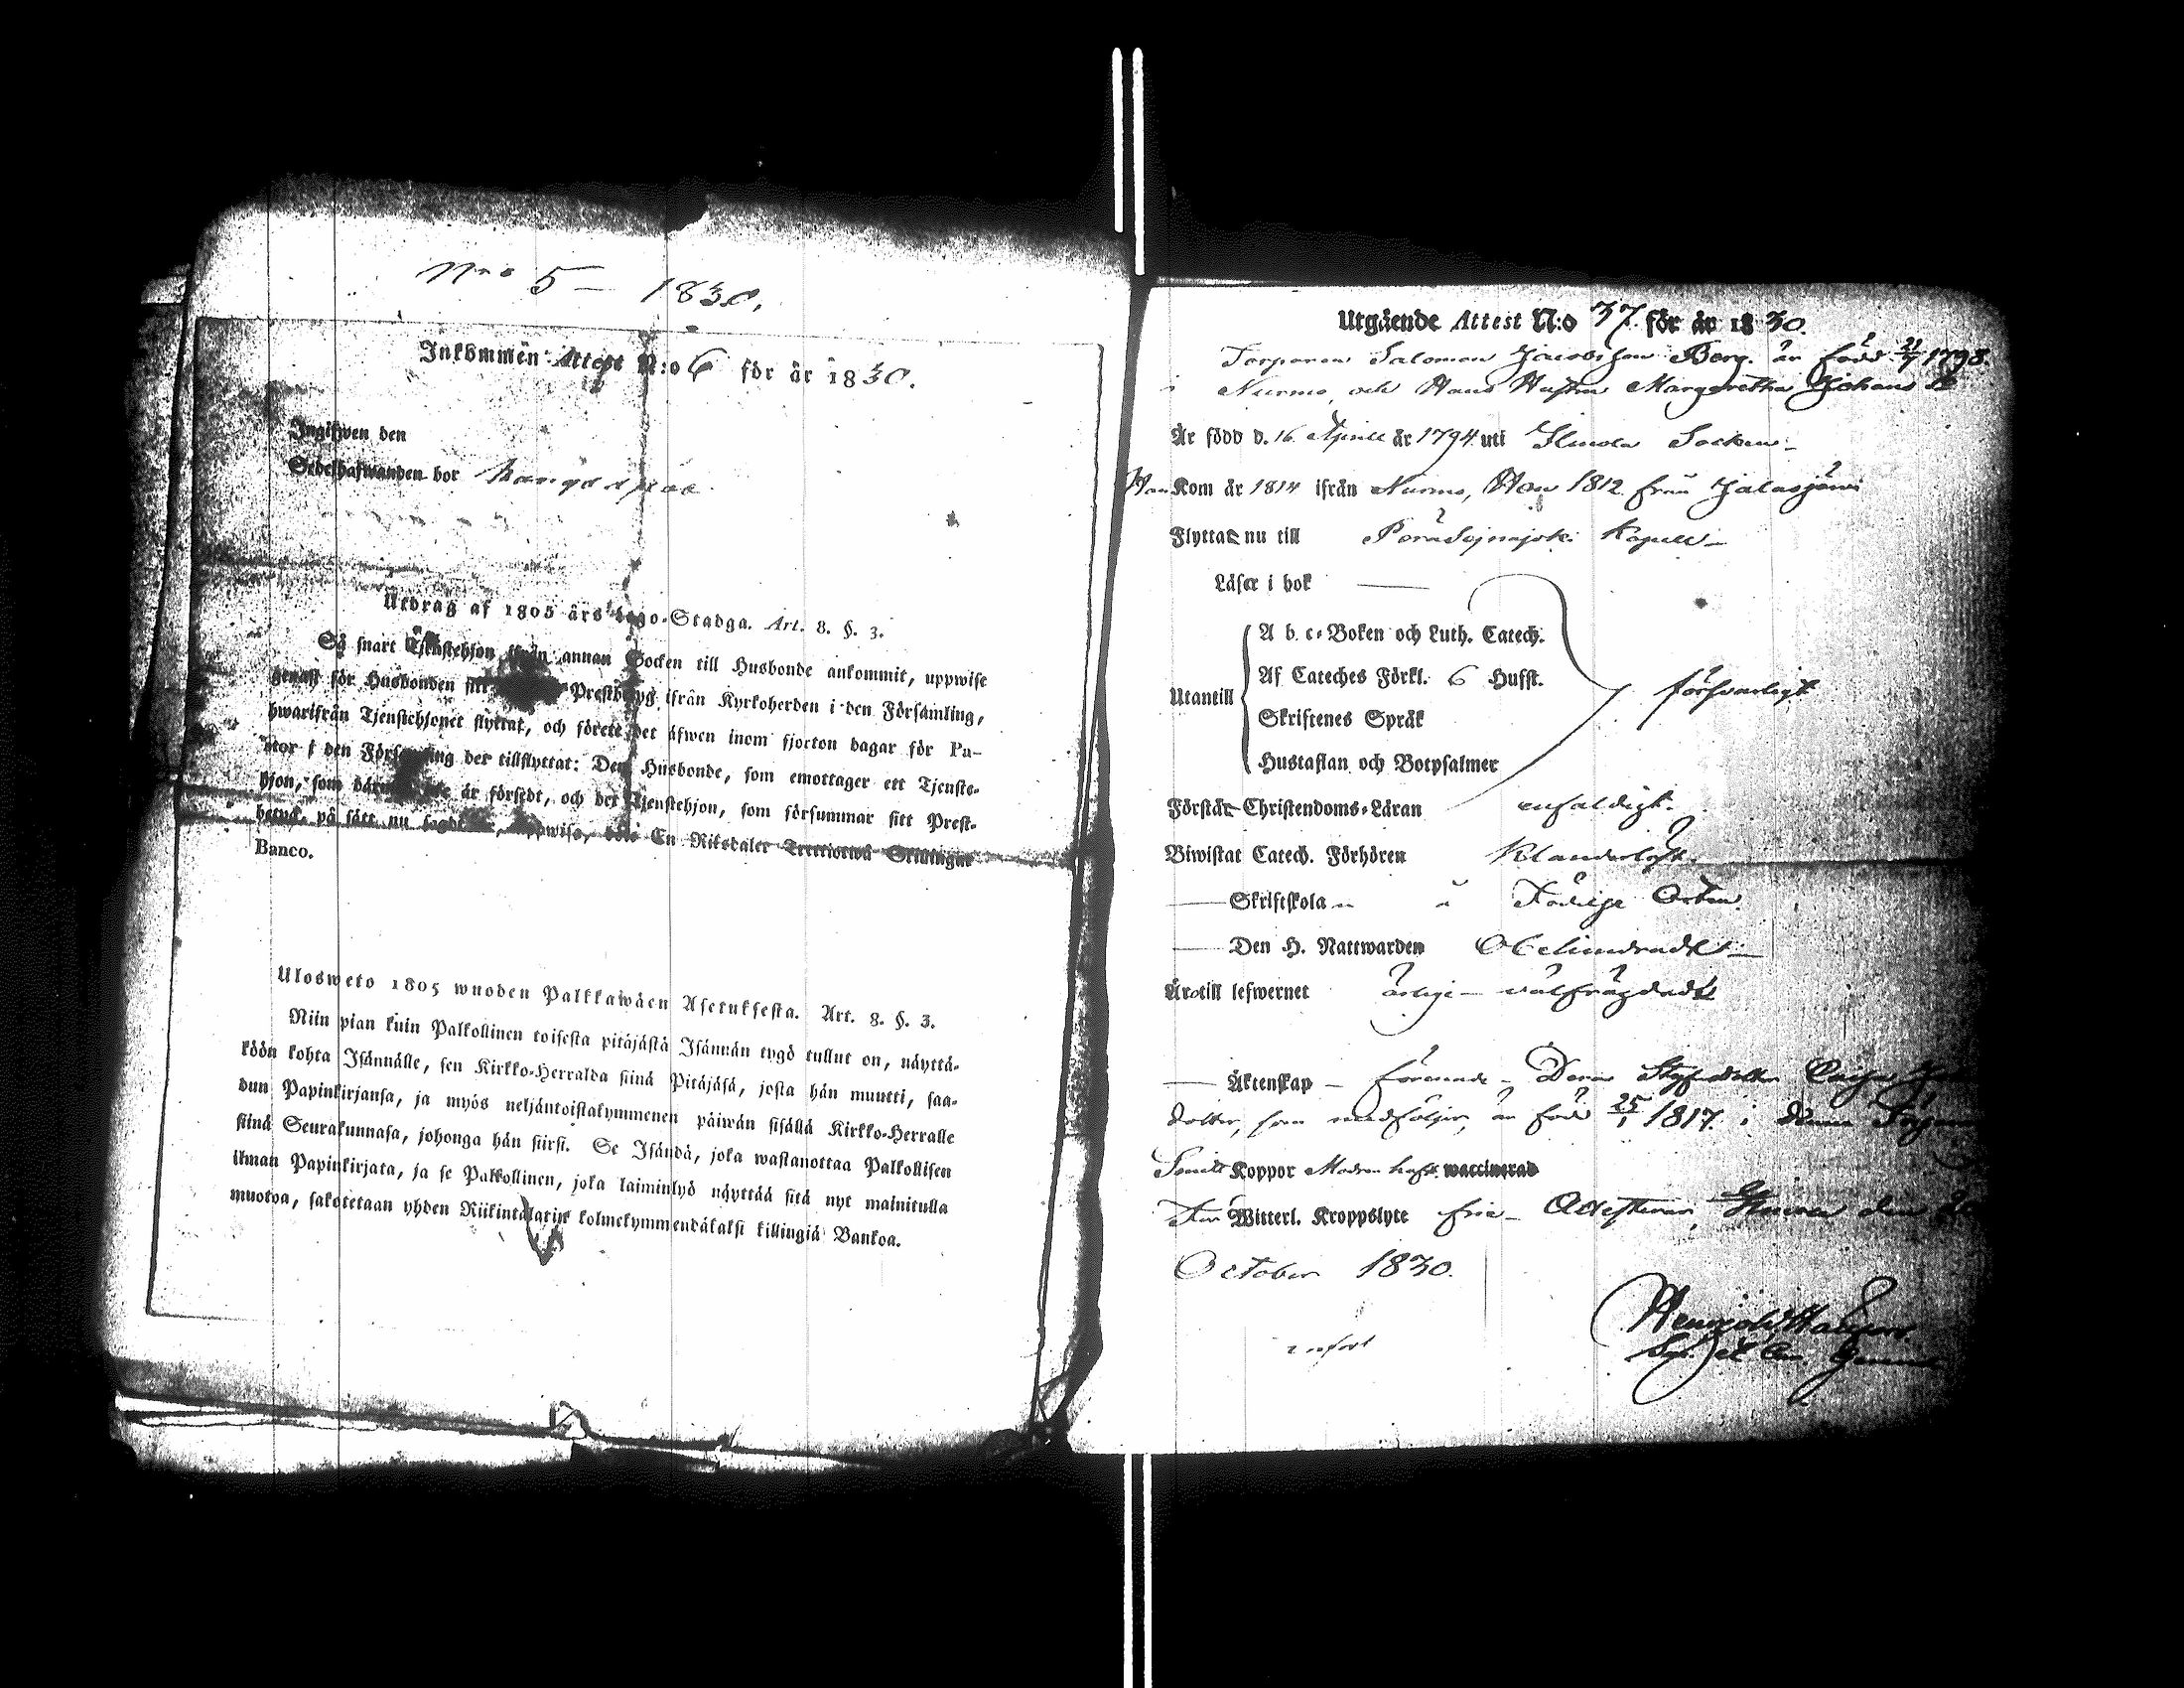 Nro 5 — 1830.
Inkommen Attest N:o 6 för år 1830.
Ingifwen den
Sedelhafwanden bor
Utdrag af 1805 års Lego-Stadga. Art. 8. §. 3.
Så snart Tjenstehjon ifrån annan Socken till Husbonde ankommit, uppwise
genast för Husbonden sitt Prestbetyg ifrån Kyrkoherden i den Församling,
hwarifrån Tjenstehjonet flyttat, och förete det äfwen inom fjorton dagar för Pa-
stor i den Församling der tillflyttat: Den Husbonde, som emottager ett Tjenste-
hjon, som är försedt, och det Tjenstehjon, som försummar sitt Prest-
betyg, på sätt nu sagdt är, uppwisa, böte En Riksdaler Trettiotwå Skillingar
Banco.
Ulosweto 1805 wuoden Palkkawäen Asetuksesta. Art. 8. §. 3.
Niin pian kuin Palkollinen toisesta pitäjästä Isännän tygö tullut on, näyttä-
köön kohta Isännälle, sen Kirkko-Herralda siinä Pitäjäsä, josta hän muutti, saa-
dun Papinkirjansa, ja myös neljäntoistakymmenen päiwän sisällä Kirkko-Herralle
siinä Seurakunnasa, johonga hän siirsi. Se Isändä, joka wastanottaa Palkollisen
ilman Papinkirjata, ja se Palkollinen, joka laiminlyö näyttää sitä nyt mainitulla
muotoa, sakotetaan yhden Riikintalarin kolmekymmendäkaksi killingiä Bankoa.
Utgående Attest N:o 37 för år 1830.
Torparen Salomon Jacobsson Berg. är född 21/7 1798.
i Nurmo, och Hans Hustru Margaretha Johans dr
Är född d. 16 Aprill år 1794 uti Ilmola Socken —
Han Kom år 1814 ifrån Nurmo, Hon 1812 från Jalasjärvi
Flyttar nu till Peräseinäjoki Kapell —
Läser i bok
A b c-Boken och Luth. Catech.
Af Cateches Förkl. 6 Hufst.
Utantill försvarligt
Skriftenes Språk
Hustaflan och Botpsalmer
Förstår Christendoms-Läran enfaldigt.
Biwistat Catech. Förhören Klanderlöst.
Skriftskola
Den H. Nattwarden Obehindradt —
Är till lefwernet ärlige — välfrägdade
Äktenskap — förenade — Deras
dotter, som medföljer, är född 25/1 1817. i denna
Koppor Modren haft. waccinerad
Witterl. Kroppslyte frie — Attesterar, Ilmola den
October 1830.